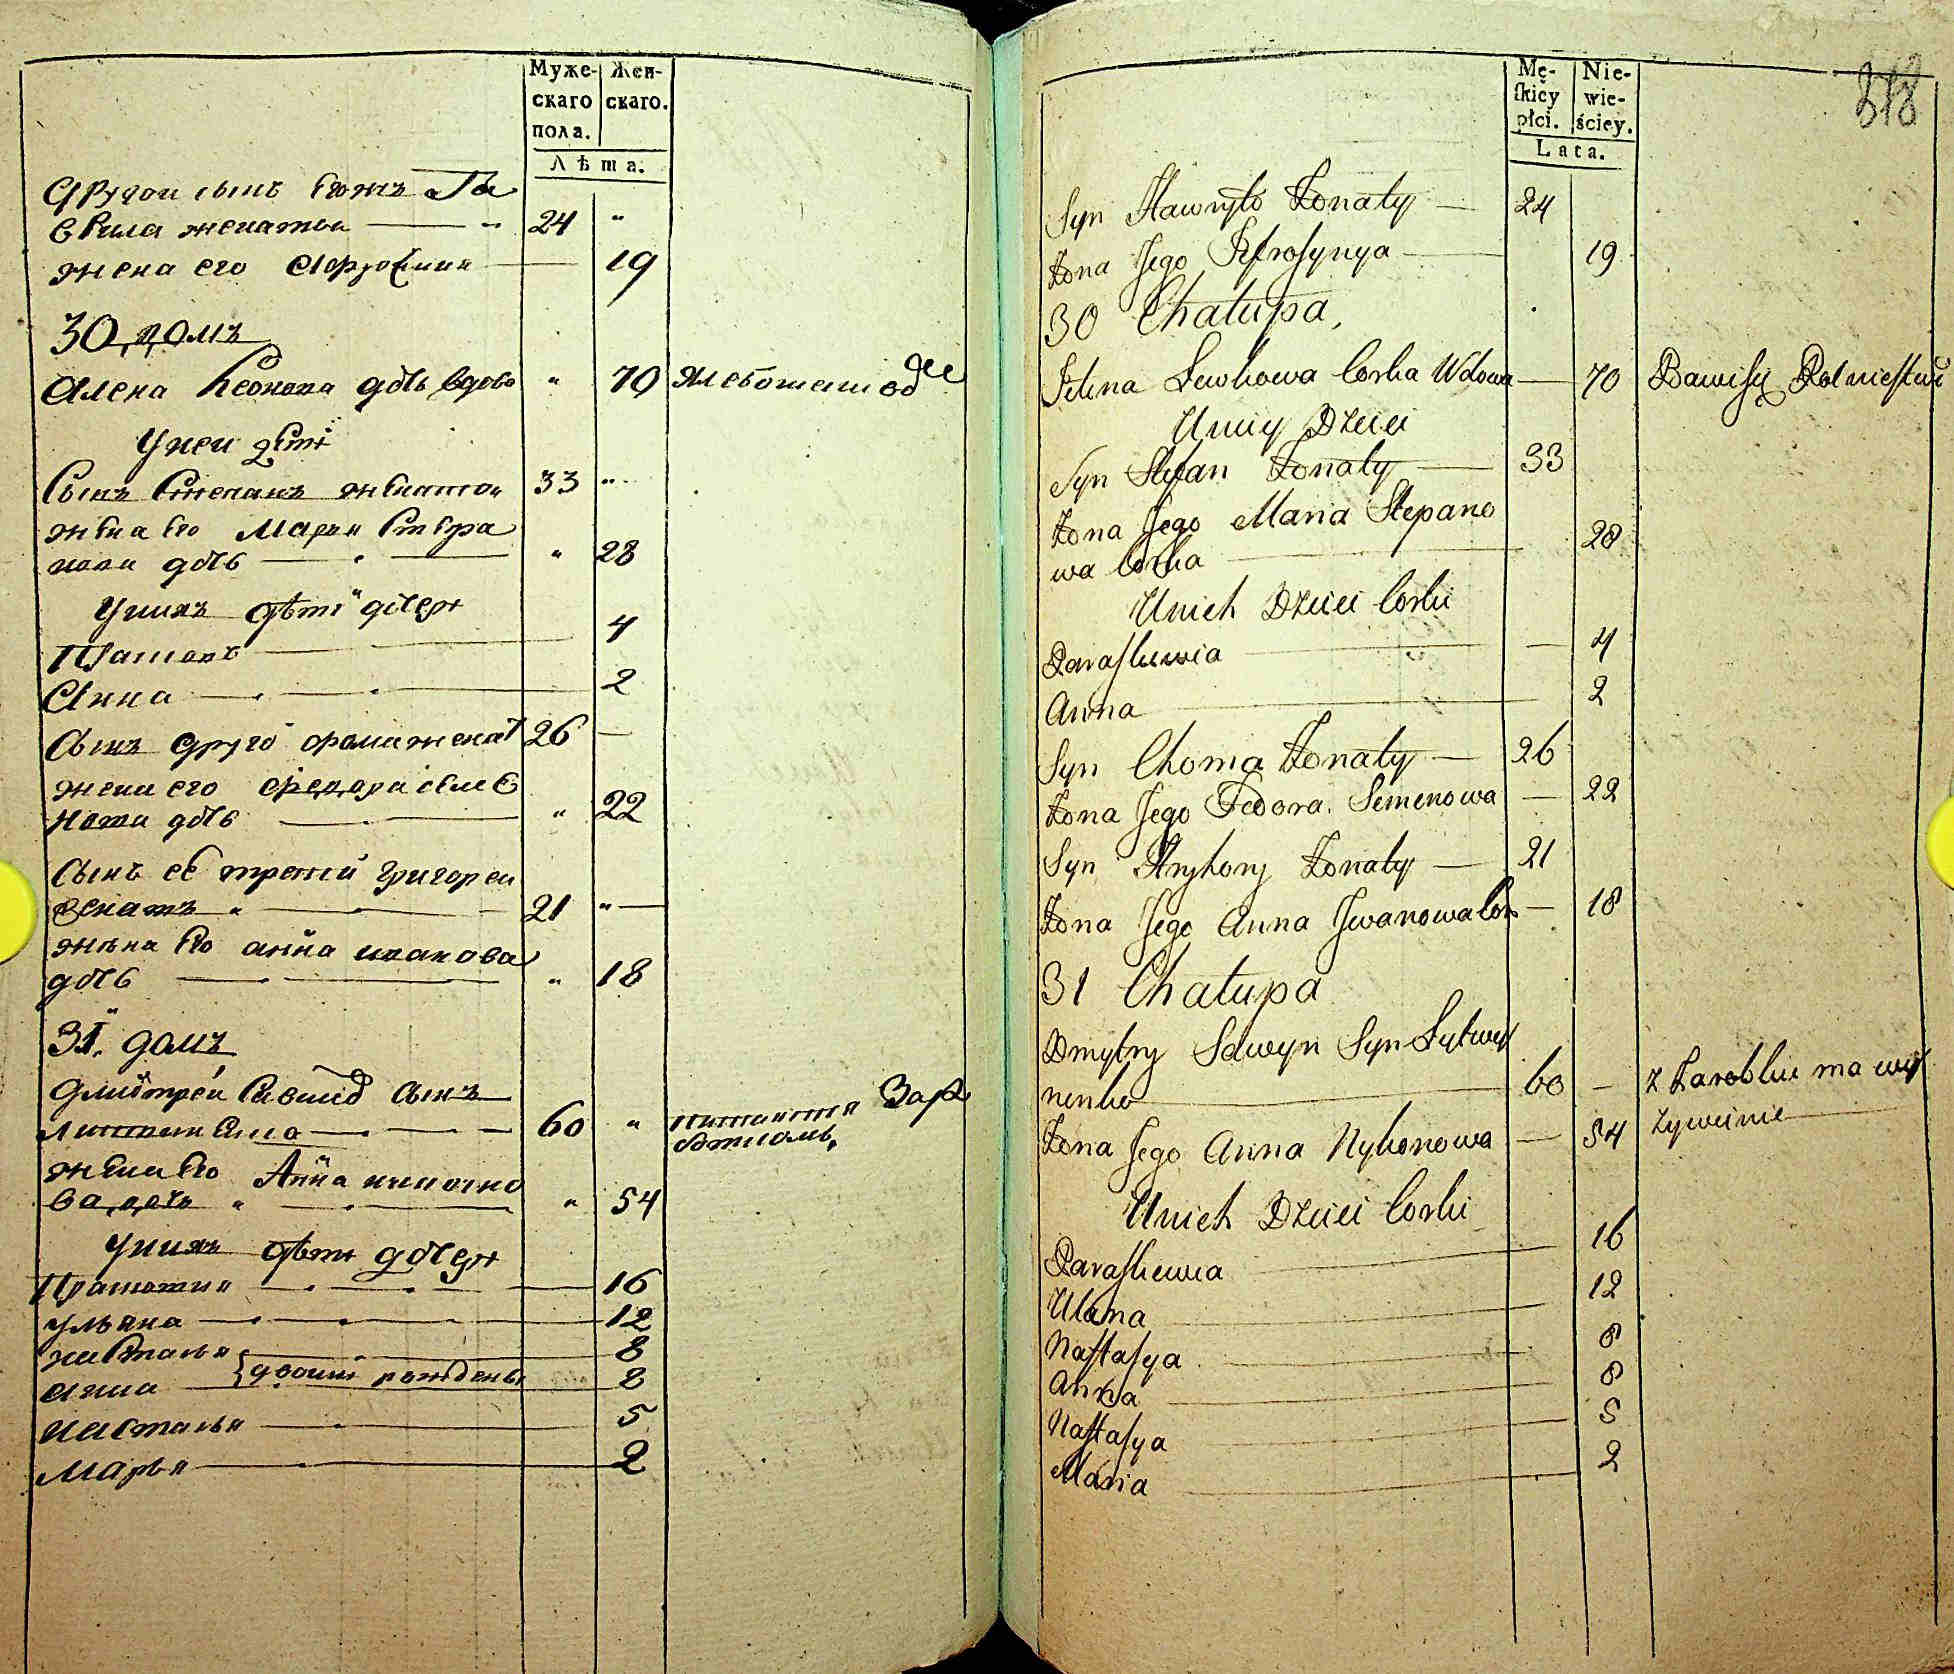 Муже-
скаго
пола.
Жен-
скаго.
Лѣта.
Другои сынъ егожъ Га
врила женатыи 24 "
жена его 19
30, домъ
Алена Леонова дочь вдова " 70
Унеи дети
Сынъ Степанъ женатои 33 "
жена его Марья Степа
нова дочь " 28
Унихъ дѣти дочери
4
Анна 2
Сынъ друго Фома женат 26 —
жена его Федора Семе
нова дочь " 22
Сынъ ее третей Григореи
женатъ 21 "
жена его анна иванова
дочь " 18
31. домъ
Дмитреи Савинъ Сынъ
60 " питаится Зара
ботками.
жена его Анна никоно
ва дочь " 54
Унихъ дѣти дочери
16
ульяна 12
настасья 8
анна 8
двоині рождены
настасья 5
Марья 2
318
Mę-
ſkiéy
płci.
Nie-
wie-
ściey.
Lata.
Syn Hawryło Żonaty — 24
Żona Jego Jefrosynya 19
30 Chałupa,
Jelena Lewkowa Corka Wdowa — 70 Bawi się Rolnictwē
U niey Dzieci
Syn Stefan Żonaty — 33
Żona Jego Maria Stepano
wa Corka 28
U nich Dzieci Corki
Paraskewia 4
Anna 2
Syn Choma Żonaty — 26
Żona Jego Fedora Semenowa — 22
Syn Hryhory Żonaty — 21
Żona Jego Anna Jwanowa Cor — 18
31 Chałupa
Dmytry Sawyn Syn Łytwy
nenko 60 — z Zarobku ma wy
żywienie
Żona Jego Anna Nykonowa — 54
U nich Dzieci Corki
Paraskewia 16
Ulana 12
Nastasya 8
Anna 8
Nastasya 5
Maria 2